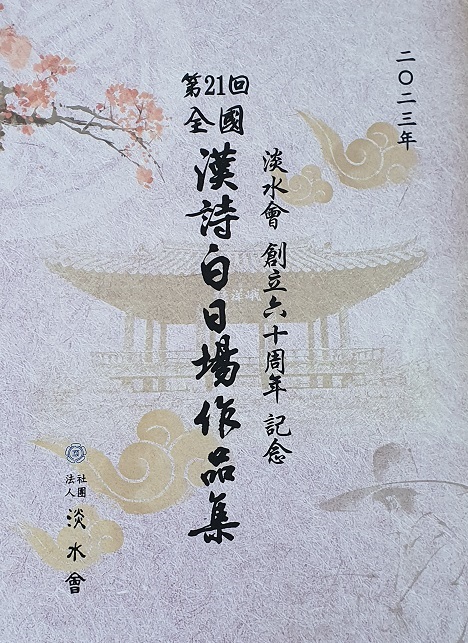 二〇二三年
淡水會 創立六十周年 記念
第21回
全國
漢詩白日場作品集
社團
法人
淡水會